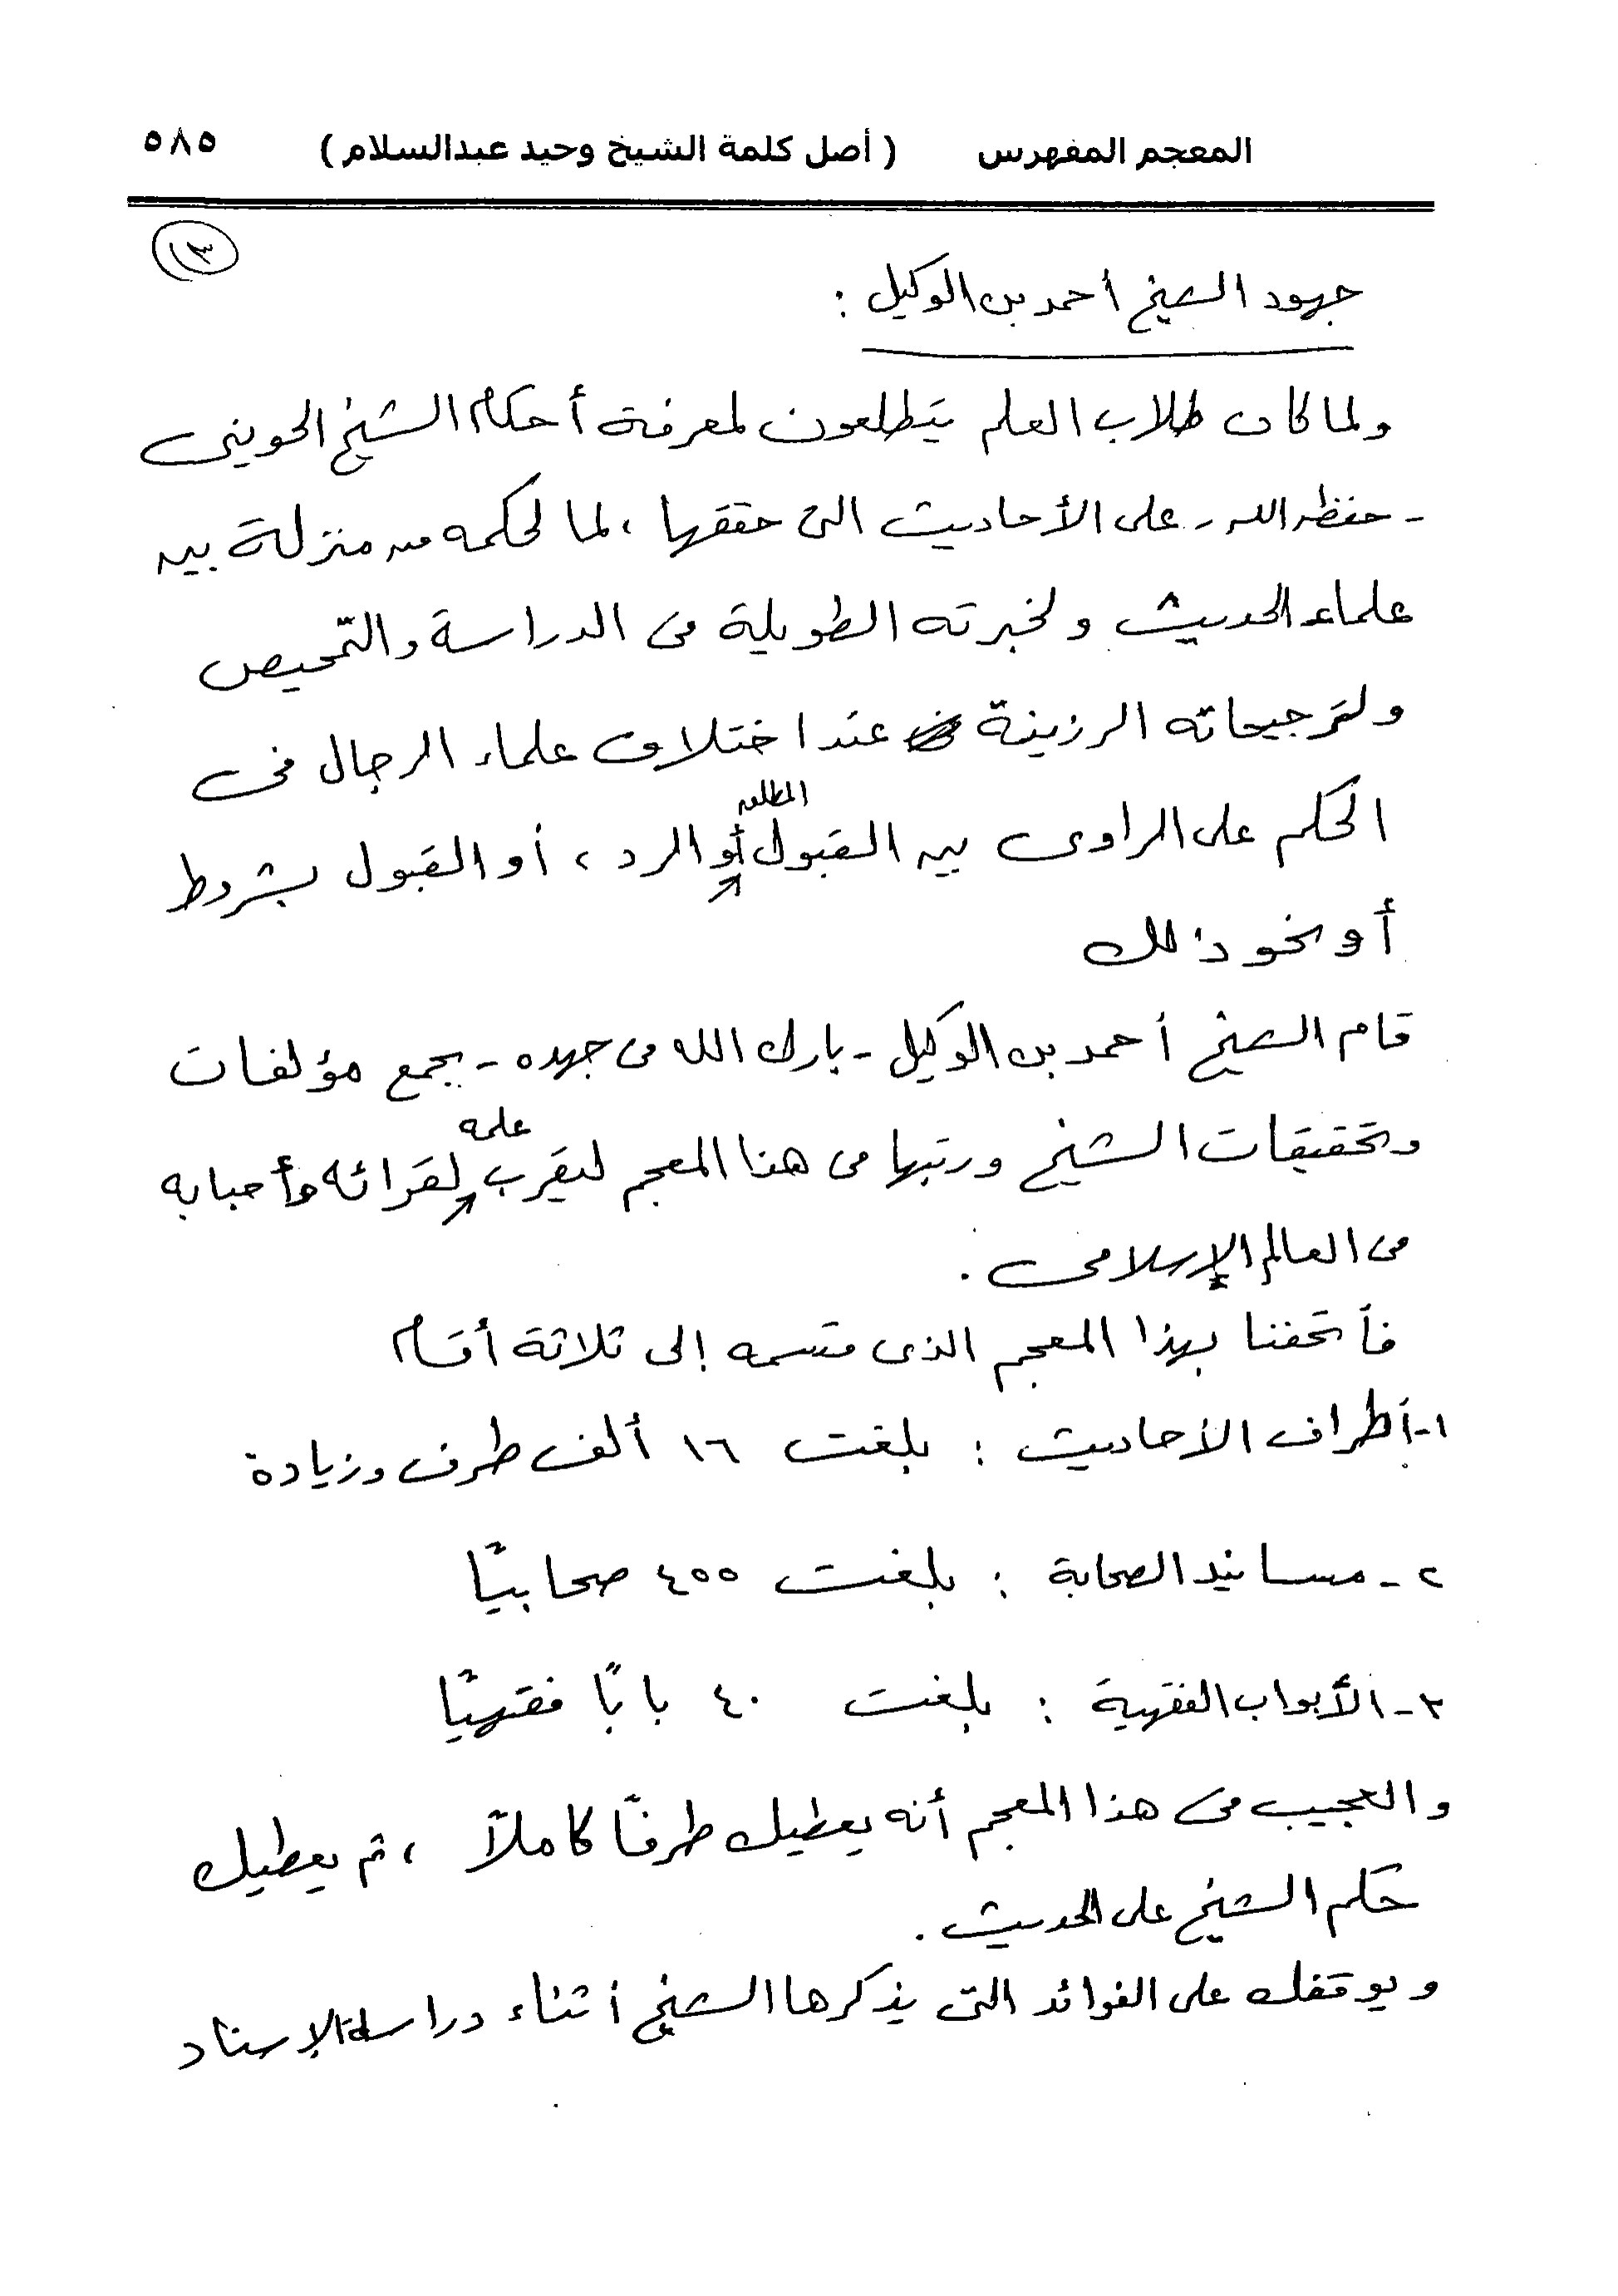 المعجم المفهرس ( أصل كلمة الشيخ وحيد عبدالسلام ) ٥٨٥
١٣
جهود الشيخ أحمد بن الوكيل :
ولما كان طلاب العلم يتطلعون لمعرفة أحكام الشيخ الحوينى
- حفظه الله - على الأحاديث التى حققها ، لما لحكمه من منزلة بين
علماء الحديث ولخبرته الطويلة فى الدراسة والتمحيص
ولترجيحاته الرزينة عند اختلاف علماء الرجال فى
الحكم على الراوى بين القبول المطلق أو الرد ، أو القبول بشروط
أو نحو ذلك
قام الشيخ أحمد بن الوكيل - بارك الله فى جهده - بجمع مؤلفات
وتحقيقات الشيخ ورتبها فى هذا المعجم ليقرب علمه لقرائه وأحبابه
فى العالم الإسلامى .
فأتحفنا بهذا المعجم الذى قسمه إلى ثلاثة أقسام
١- أطراف الأحاديث : بلغت ١٦ ألف طرف وزيادة
٢ - مسانيد الصحابة : بلغت ٤٥٥ صحابيًا
٣ - الأبواب الفقهية : بلغت ٤٠ بابًا فقهيًا
والعجيب فى هذا المعجم أنه يعطيك طرفًا كاملاً ، ثم يعطيك
حكم الشيخ على الحديث .
ويوقفك على الفوائد التى يذكرها الشيخ أثناء دراسة الإسناد